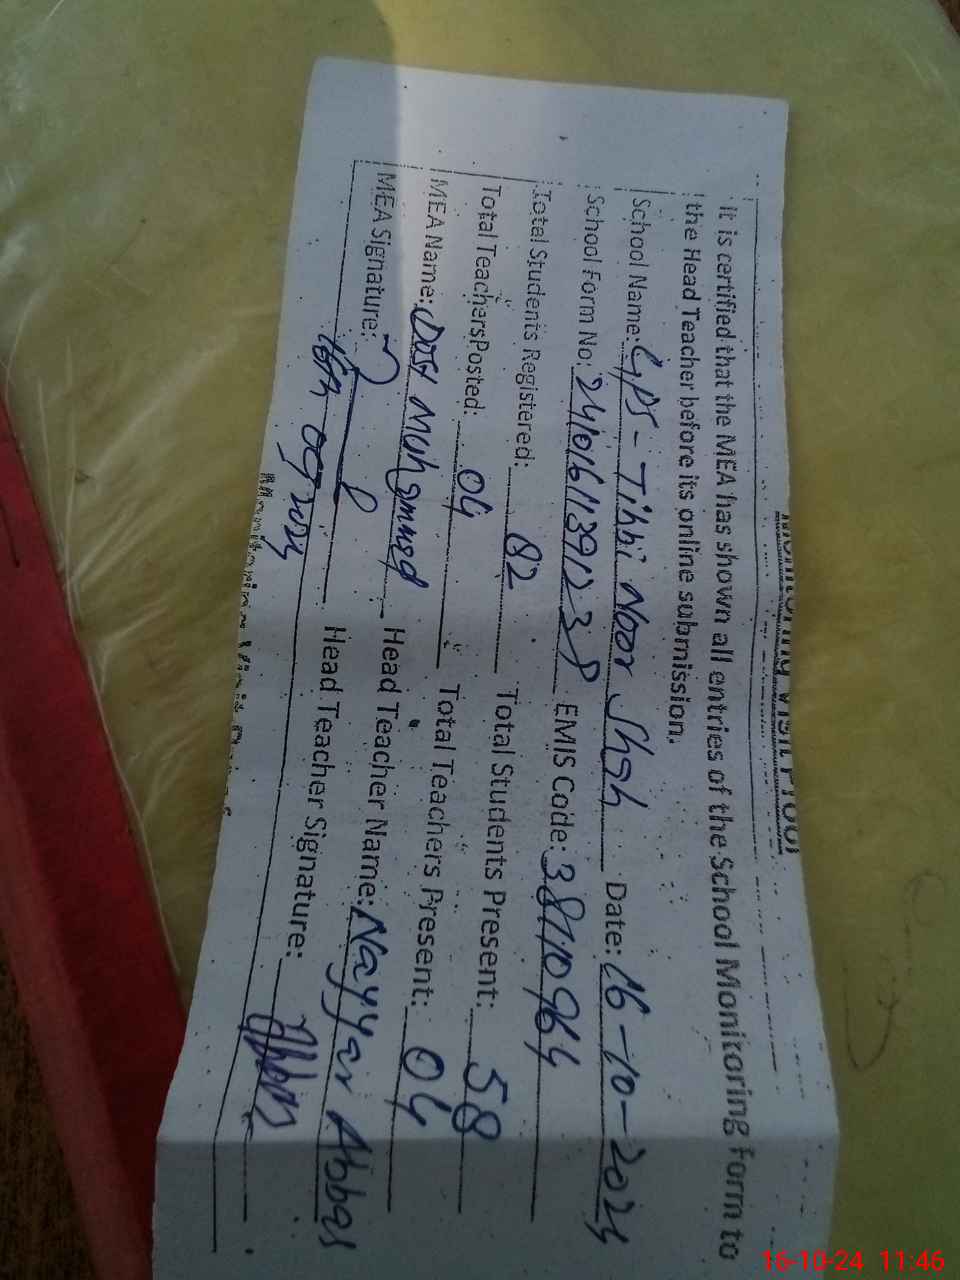 Monitoring Visit Proof
It is certified that the MEA has shown all entries of the School Monitoring Form to
the Head Teacher before its online submission.
School Name: GPS - Tibbi Noor Shah Date: 16-10-2024
School Form No: 24101611391238 EMIS Code: 38110964
Total Students Registered: 82 Total Students Present: 58
Total Teachers Posted: 04 Total Teachers Present: 04
MEA Name: Dost Muhammad Head Teacher Name: Nayyar Abbas
MEA Signature: Head Teacher Signature: Abbas
16-10-24 11:46